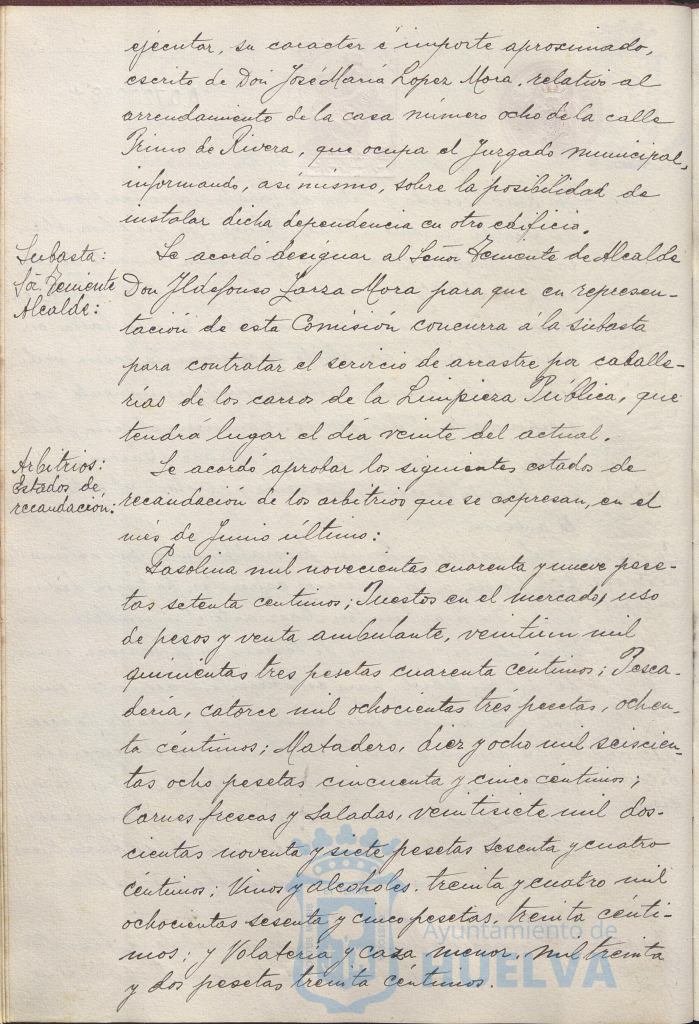 ejecutar, su caracter é importe aproximado,
escrito de Don José María Lopez Mora, relativo al
arrendamiento de la casa número ocho de la calle
Primo de Rivera, que ocupa el Juzgado municipal,
informando, asimismo, sobre la posibilidad de
instalar dicha dependencia en otro edificio.
Subasta:
Sr. Teniente
Alcalde:
Se acordó designar al Señor Teniente de Alcalde
Don Ildefonso Zarza Mora para que en represen-
tación de esta Comisión concurra á la subasta
para contratar el servicio de arrastre por caballe-
rías de los carros de la Limpieza Pública, que
tendrá lugar el día veinte del actual.
Arbitrios:
Estados de
recaudación:
Se acordó aprobar los siguientes estados de
recaudación de los arbitrios que se expresan, en el
més de Junio último:
Gasolina mil novecientas cuarenta y nueve pese-
tas setenta céntimos; Puestos en el mercado, uso
de pesos y venta ambulante, veintiun mil
quinientas tres pesetas cuarenta céntimos; Pesca-
dería, catorce mil ochocientas trés pesetas, ochen-
ta céntimos; Matadero, diez y ocho mil seiscien-
tas ocho pesetas cincuenta y cinco céntimos;
Carnes frescas y saladas, veintisiete mil dos-
cientas noventa y siete pesetas sesenta y cuatro
céntimos; Vinos y alcoholes, treinta y cuatro mil
ochocientas sesenta y cinco pesetas, treinta cénti-
mos; y Volatería y caza menor, mil treinta
y dos pesetas treinta céntimos.
Ayuntamiento de
HUELVA